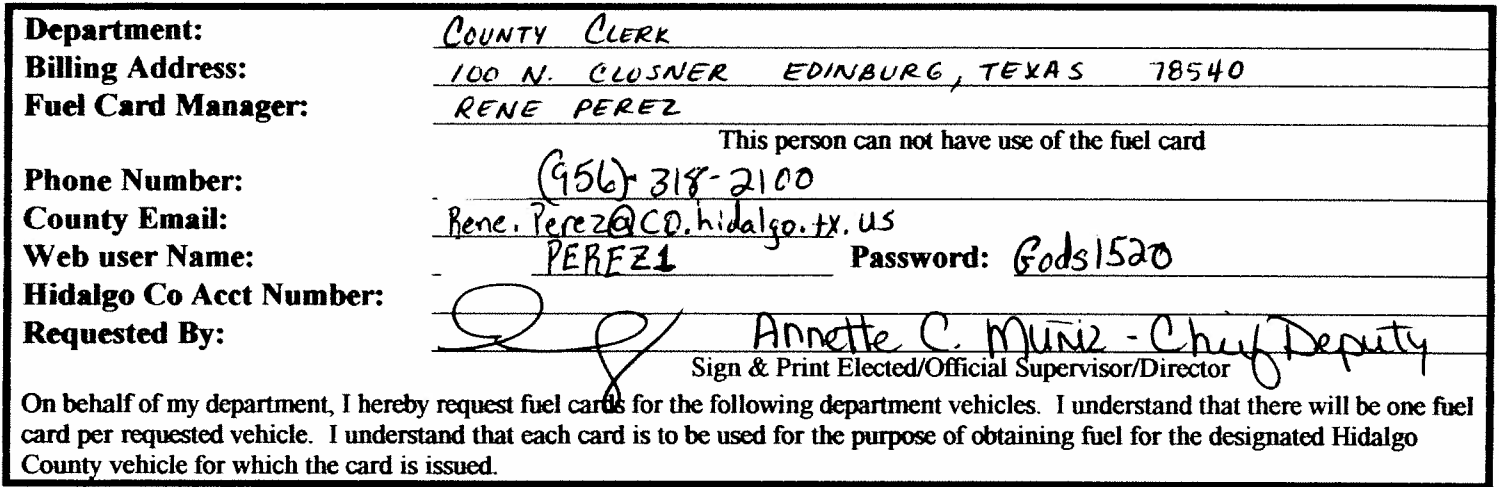 Department: COUNTY CLERK
Billing Address: 100 N. CLOSNER EDINBURG, TEXAS 78540
Fuel Card Manager: RENE PEREZ
This person can not have use of the fuel card
Phone Number: (956)-318-2100
County Email: Rene.Perez@CO.hidalgo.tx.us
Web user Name: PEREZ1 Password: Gods1520
Hidalgo Co Acct Number:
Requested By: Annette C. Muñiz - Chief Deputy
Sign & Print Elected/Official Supervisor/Director
On behalf of my department, I hereby request fuel cards for the following department vehicles. I understand that there will be one fuel
card per requested vehicle. I understand that each card is to be used for the purpose of obtaining fuel for the designated Hidalgo
County vehicle for which the card is issued.